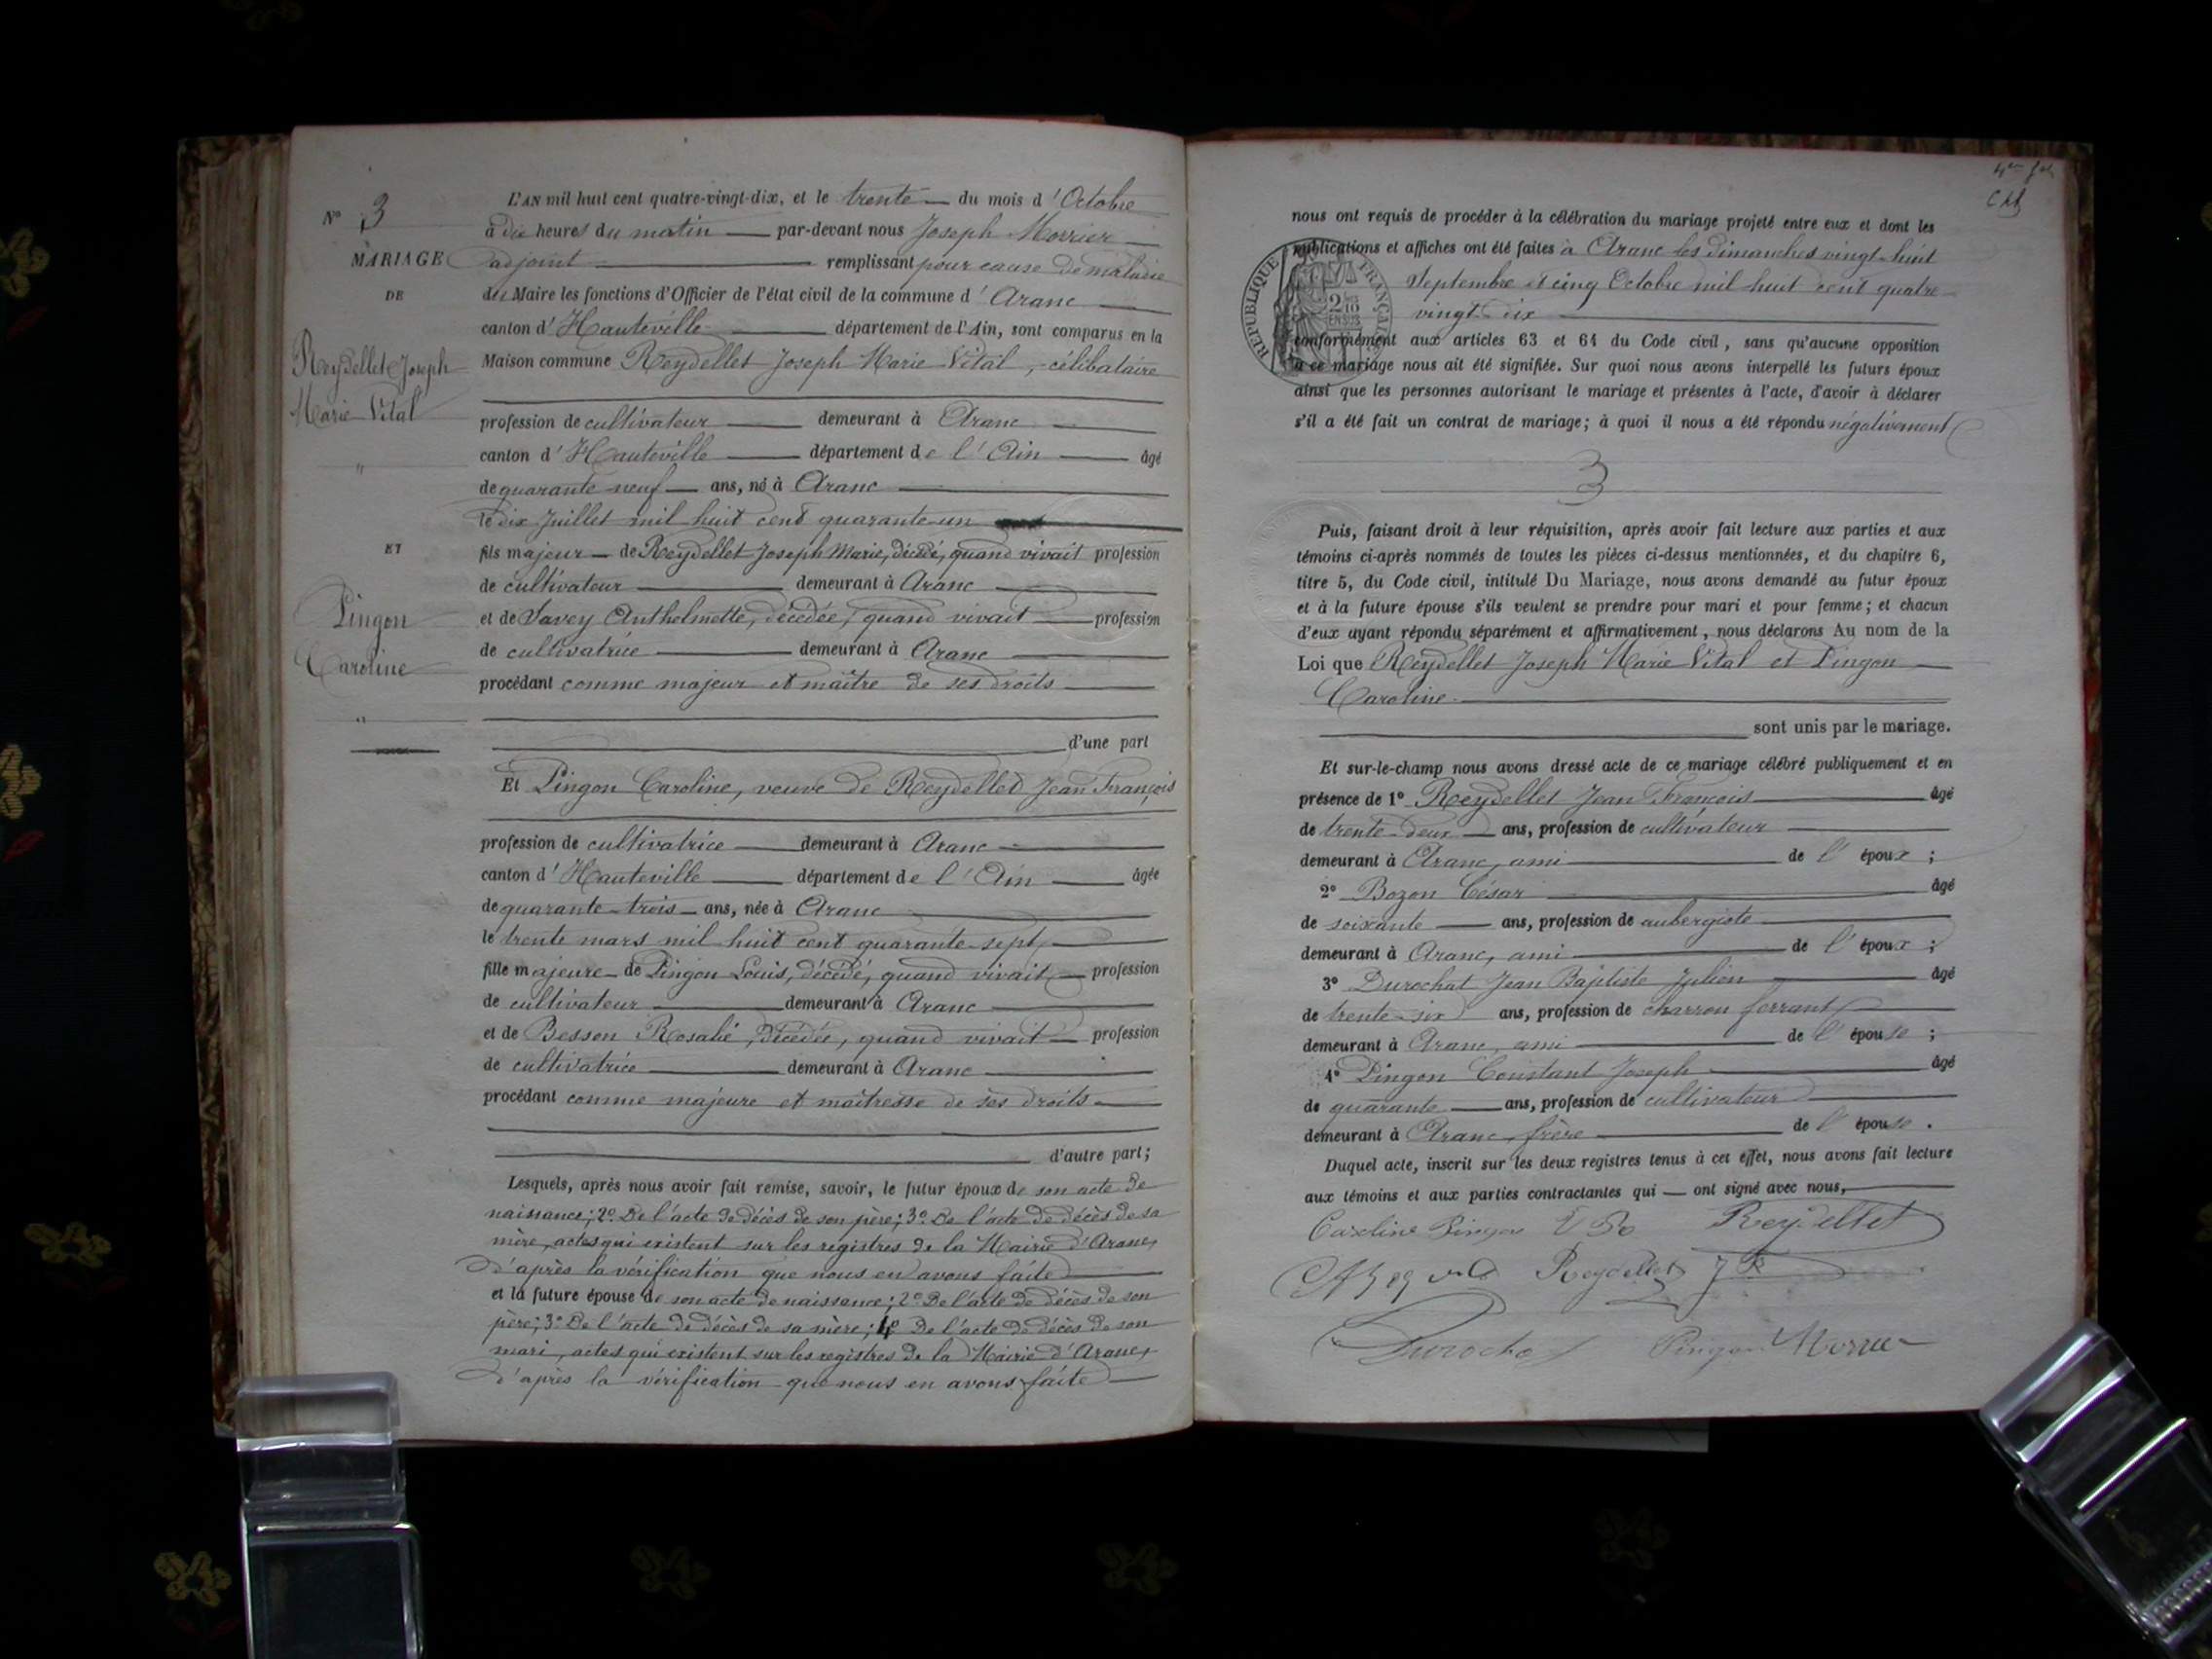 N° 3
MARIAGE
DE
Reydellet Joseph
Marie Vital
"
ET
Pingon
Caroline
"
L'AN mil huit cent quatre-vingt-dix, et le trente du mois d'Octobre
à dix heures du matin par-devant nous Joseph Morrier
adjoint remplissant pour cause de maladie
du Maire les fonctions d'Officier de l'état civil de la commune d'Aranc
canton d'Hauteville département de l'Ain, sont comparus en la
Maison commune Reydellet Joseph Marie Vital, célibataire
profession de cultivateur demeurant à Aranc
canton d'Hauteville département de l'Ain âgé
de quarante neuf ans, né à Aranc
le dix Juillet mil huit cent quarante-un
fils majeur de Reydellet Joseph Marie, décédé, quand vivait profession
de cultivateur demeurant à Aranc
et de Savey Anthelmette, décédée, quand vivait profession
de cultivatrice demeurant à Aranc
procédant comme majeur et maître de ses droits
d'une part
Et Pingon Caroline, veuve de Reydellet Jean François
profession de cultivatrice demeurant à Aranc
canton d'Hauteville département de l'Ain âgée
de quarante-trois ans, née à Aranc
le trente mars mil huit cent quarante-sept
fille majeure de Pingon Louis, décédé, quand vivait profession
de cultivateur demeurant à Aranc
et de Besson Rosalie, décédée, quand vivait profession
de cultivatrice demeurant à Aranc
procédant comme majeure et maîtresse de ses droits
d'autre part;
Lesquels, après nous avoir fait remise, savoir, le futur époux de son acte de
naissance; 2° De l'acte de décès de son père; 3° De l'acte de décès de sa
mère, actes qui existent sur les registres de la Mairie d'Aranc,
d'après la vérification que nous en avons faite
et la future épouse de son acte de naissance; 2° De l'acte de décès de son
père; 3° De l'acte de décès de sa mère; 4° De l'acte de décès de son
mari, actes qui existent sur les registres de la Mairie d'Aranc,
d'après la vérification que nous en avons faite
nous ont requis de procéder à la célébration du mariage projeté entre eux et dont les
publications et affiches ont été faites à Aranc les Dimanches vingt-huit
Septembre et cinq Octobre mil huit cent quatre
vingt-dix
RÉPUBLIQUE FRANÇAISE
conformément aux articles 63 et 64 du Code civil, sans qu'aucune opposition
à ce mariage nous ait été signifiée. Sur quoi nous avons interpellé les futurs époux
ainsi que les personnes autorisant le mariage et présentes à l'acte, d'avoir à déclarer
s'il a été fait un contrat de mariage; à quoi il nous a été répondu négativement
3
Puis, faisant droit à leur réquisition, après avoir fait lecture aux parties et aux
témoins ci-après nommés de toutes les pièces ci-dessus mentionnées, et du chapitre 6,
titre 5, du Code civil, intitulé Du Mariage, nous avons demandé au futur époux
et à la future épouse s'ils veulent se prendre pour mari et pour femme; et chacun
d'eux ayant répondu séparément et affirmativement, nous déclarons Au nom de la
Loi que Reydellet Joseph Marie Vital et Pingon
Caroline
sont unis par le mariage.
Et sur-le-champ nous avons dressé acte de ce mariage célébré publiquement et en
présence de 1° Reydellet Jean François âgé
de trente-deux ans, profession de cultivateur
demeurant à Aranc, ami de l'époux;
2° Bozon César âgé
de soixante ans, profession de aubergiste
demeurant à Aranc, ami de l'époux;
3° Durochat Jean Baptiste Julien âgé
de trente-six ans, profession de charron ferrant
demeurant à Aranc, ami de l'épouse;
4° Pingon Constant Joseph âgé
de quarante ans, profession de cultivateur
demeurant à Aranc, frère de l'épouse.
Duquel acte, inscrit sur les deux registres tenus à cet effet, nous avons fait lecture
aux témoins et aux parties contractantes qui ont signé avec nous,
Caroline Pingon Reydellet
Reydellet
Durochat Pingon Morrier